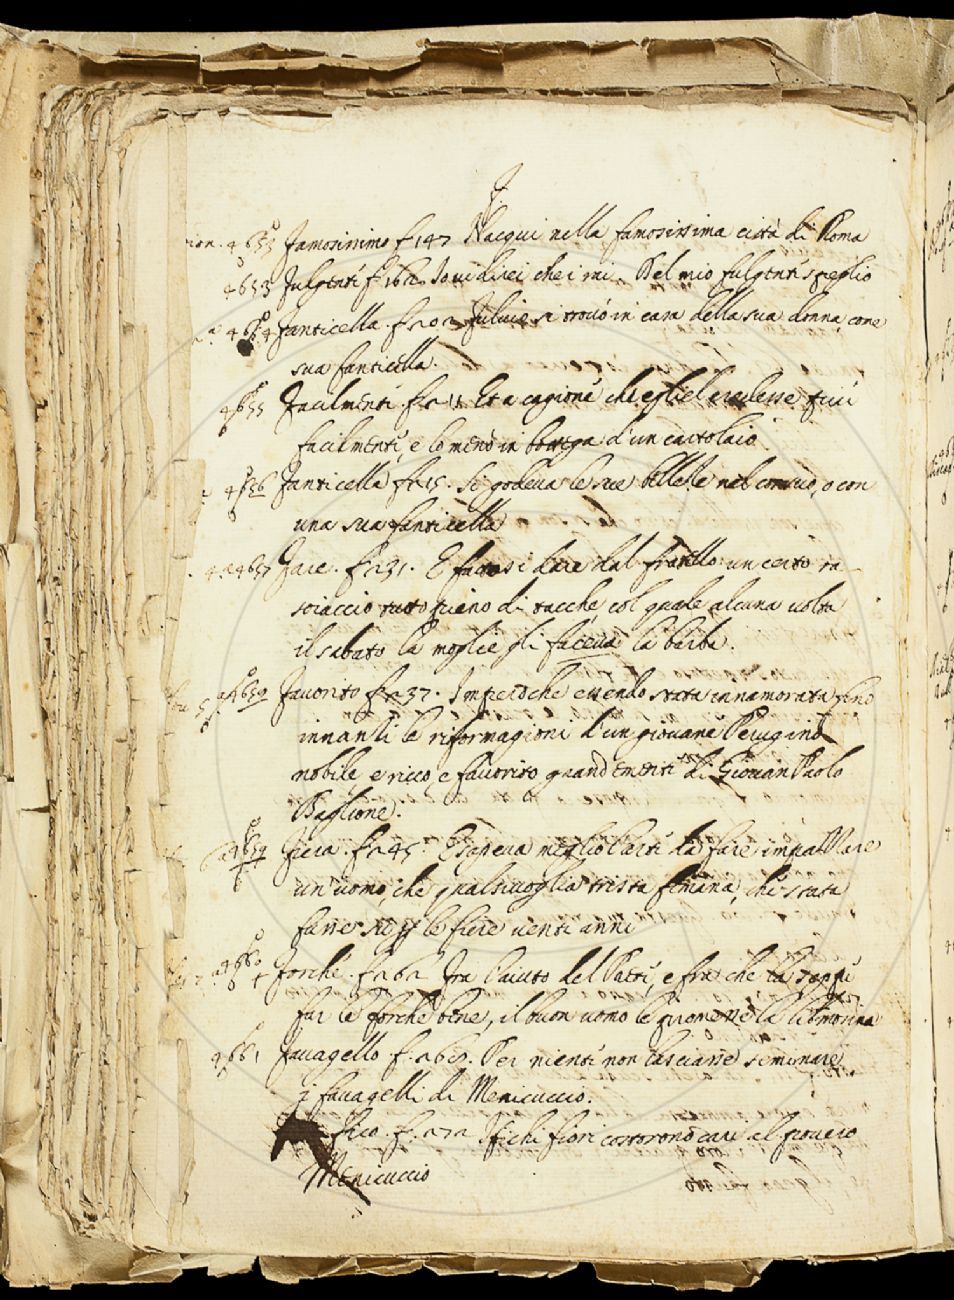 F.
4653 Famosissimo f. 147 Nacqui nella famosissima città di Roma
4653 Fulgenti f. 162. Io vidi sei che i mi. Del mio fulgenti speglio
4654 Fanticella. f. 202 Fulvio si trovò in casa della sua donna, come
sua fanticella.
4655 Facilmenti. f. 211 Et a cagione che egli el credesse più
facilmenti, e lo menò in bottega d'un cartolaio
4656 Fanticella f. 215. Si godeva le sue bellezze nel convito, o con
una sua fanticella
4657 Fare. f. 231. E fattosi dare dal fratello un certo ra
soiaccio tutto pieno di tacche col quale alcuna volta
il sabato la moglie gli faceva la barba.
4658 Favorito f. 237. Imperoche essendo stata innamorata fino
innanzi le riformagioni d'un giovane Perugino
nobile e ricco, e favorito grandementi di Giovan Paolo
Baglione.
4659 Fiera. f. 245. E sapeva meglio l'arti da fare impazzare
un uomo, che qualsivoglia trista femina, che stata
fusse su per le fiere venti anni
4660 Forche. f. 262 Fra l'aiuto del Patti, e fra che la seppe
far le forche bene, il buon uomo le promesse la limosina
4661 Favagello f. 269. Per nienti non lasciasse seminare
i favagelli di Menicuccio.
Fico. f. 272 I fichi fiori costorono cari al povero
Menicuccio